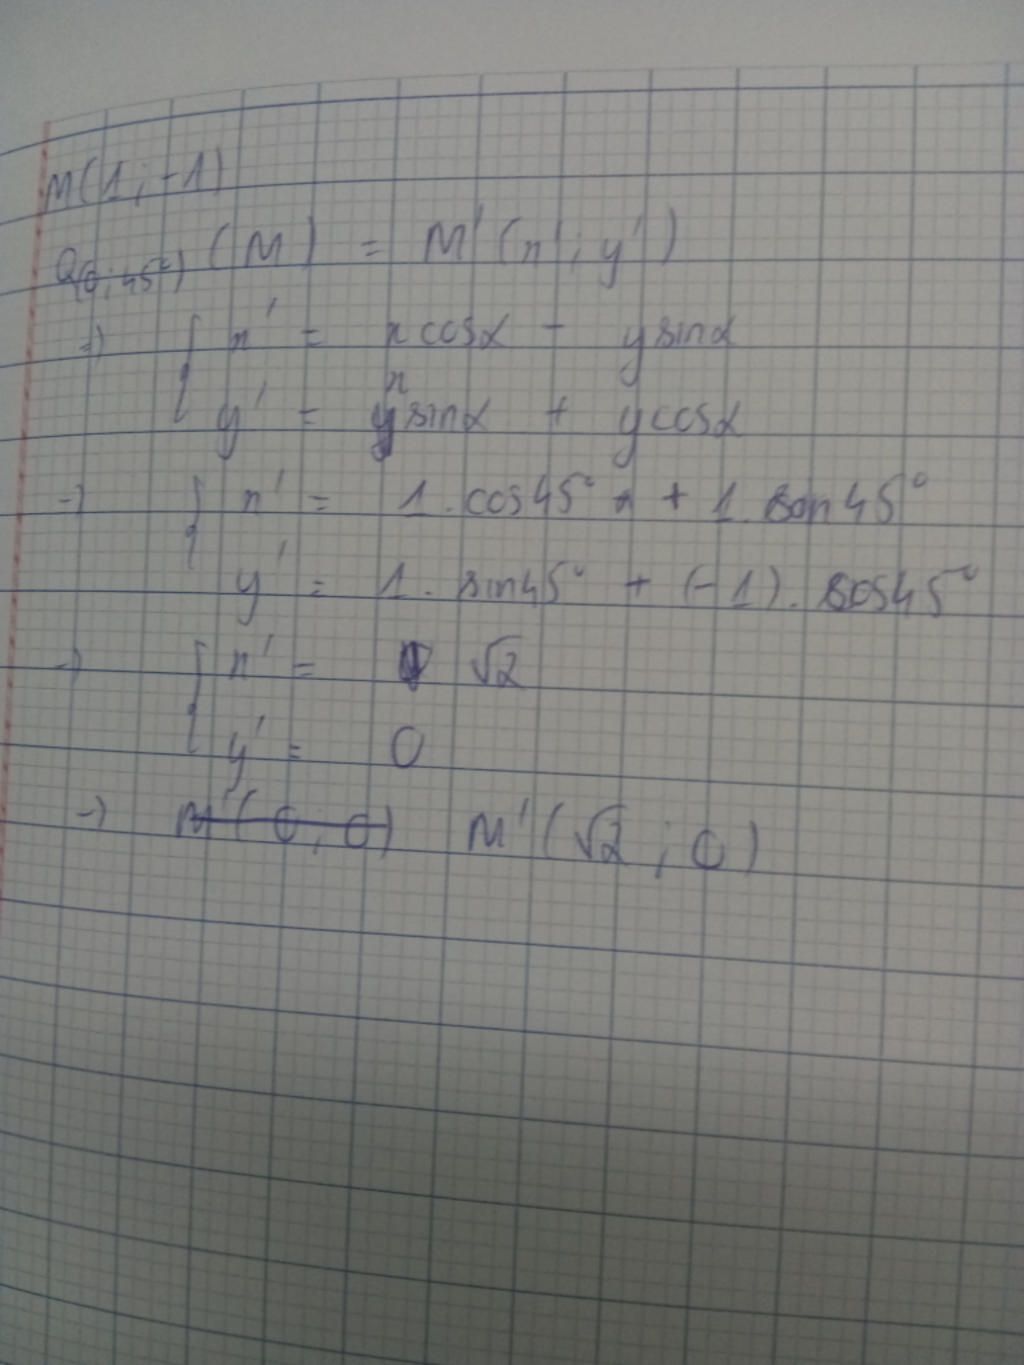 M(1; -1)
Q(0; 45°) (M) = M'(x'; y')
=> { x' = x cosα - y sinα
y' = x sinα + y cosα
-> { x' = 1. cos45° + 1. sin45°
y' = 1. sin45° + (-1). cos45°
-> { x' = √2
y' = 0
-> M'(0; 0) M'(√2; 0)